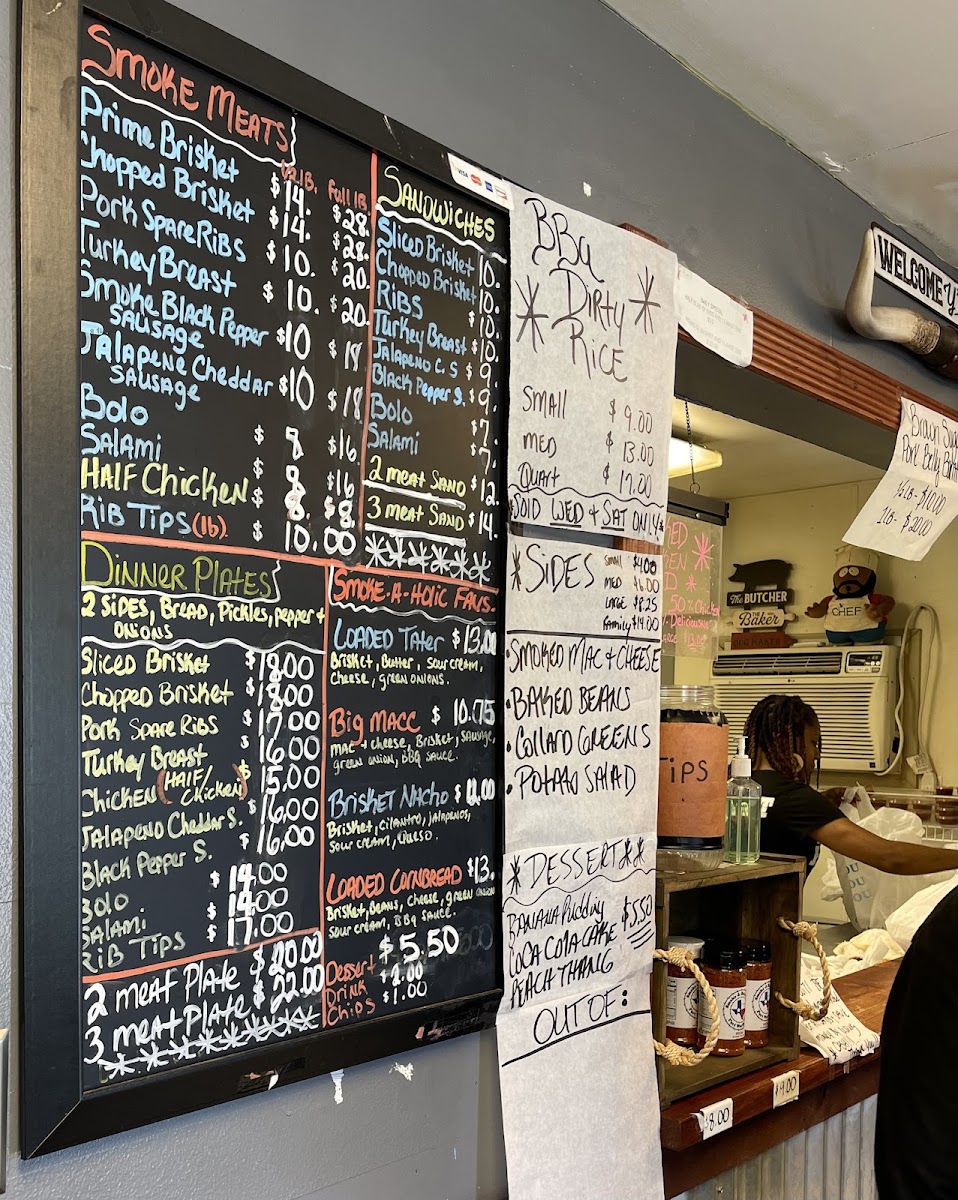 SMOKE MEATS
1/2 LB. Full lB.
Prime Brisket $14. $28.
Chopped Brisket $14. $28.
Pork Spare Ribs $10. $20.
Turkey Breast $10. $20.
Smoke Black Pepper
SAUSAGE $10 $18
JAlAPENE CHEDDAR
SAUSAGE $10 $18
Bolo $8 $16
SAlami $8 $16
HAlF CHICKEN $8 $8.
RIB TIPS (lb) $10.00
SANDWICHES
Sliced Brisket 10.
Chopped Brisket 10.
RIBS $10.
Turkey Breast $10.
JAlAPENO C. S $9.
BlACK Pepper S. $9.
Bolo $7.
SAlami $7.
2 meat SAND $12.
3 meat SAND $14.
DINNER PlATES
2 SIDES, BREAD, PICKLES, PEPPER +
ONIONS
Sliced Brisket $18.00
Chopped Brisket $18.00
Pork Spare Ribs $17.00
Turkey Breast $16.00
Chicken (HAlF/Chicken) $15.00
JAlAPENO CHEDDAR S. $16.00
BlACK Pepper S. $16.00
Bolo $14.00
SAlami $14.00
RIB TIPS $17.00
2 meat PlATE $20.00
3 meat PlATE $22.00
SMOKE-A-HOlIC FAVS.
LOADED TATER $13.00
Brisket, Butter, sour cream,
cheese, green onions.
Big MACC $10.75
MAC + cheese, Brisket, sausage,
green onion, BBQ SAUCE.
Brisket NACHO $
Brisket, cilantro, jalapenos,
sour cream, queso.
LOADED CORNBREAD $13.
Brisket, Beans, cheese, green onion
sour cream, BBQ SAUCE.
Dessert $5.50
DRINK $2.00
CHIPS $1.00
VISA
BBQ
DIRTY
RICE
SMAll $9.00
MED $13.00
QUART $17.00
SOlD WED & SAT ONlY
SIDES
SMAll $4.00
MED $6.00
LARGE $8.25
FAMIlY $14.00
•SMOKED MAC & CHEESE
•BAKED BEANS
•COllARD GREENS
•POTATO SAlAD
DESSERT
BANANA PUDDING $5.50
COCA COlA CAKE
PEACH THANG
OUT OF:
WELCOME Y'
Brown Sug
Pork Belly Bur
1/2 lB- $10.00
1 lB- $20.00
The BUTCHER
THE Baker
CHEF
TIPS
$8.00
$9.00